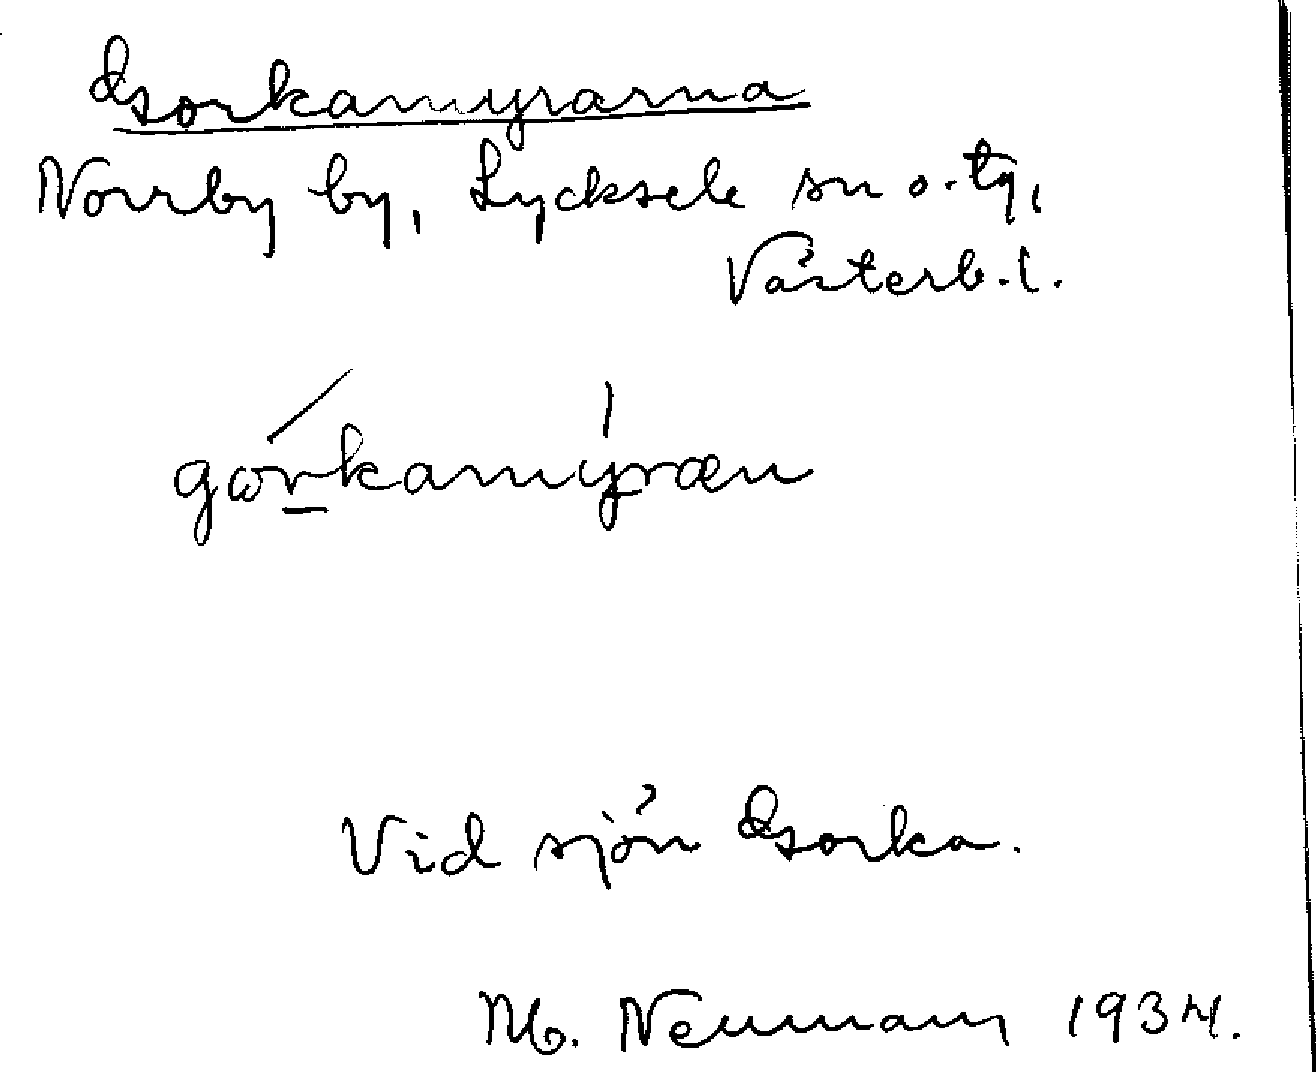 Gorkamyrarna
Norrby by, Lycksele sn o. tg,
Västerb. l.
gωr̲kamyræn
Vid sjön Gorka.
M. Neuman 1934.